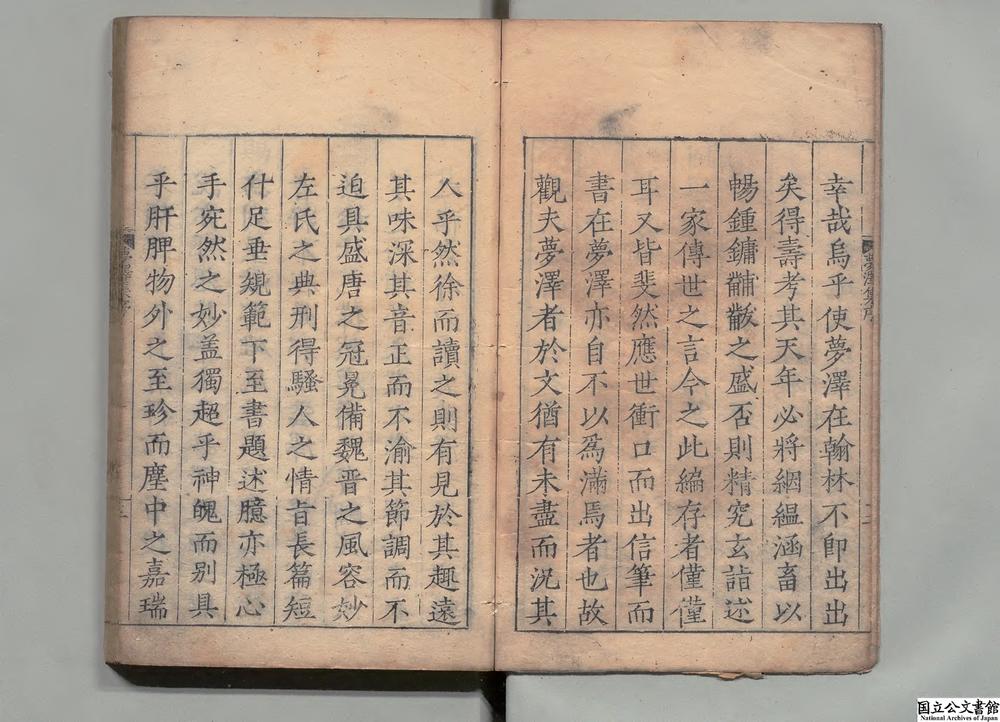 幸哉烏乎使夢澤在翰林不卽出出
矣得壽考其天年必將絪緼涵畜以
暢鍾鏞黼黻之盛否則精究玄詣述
一家傳世之言今之此編存者僅僅
耳又皆斐然應世衝口而出信筆而
書在夢澤亦自不以爲滿焉者也故
觀夫夢澤者於文猶有未盡而况其
人乎然徐而讀之則有見於其趣遠
其味深其音正而不渝其節調而不
迫具盛唐之冠冕備魏晋之風容玅
左氏之典刑得騷人之情旨長篇短
什足垂規範下至書題述臆亦極心
手宛然之妙盖獨超乎神魄而别具
乎肝脾物外之至珍而塵中之嘉瑞
国立公文書館
National Archives of Japan